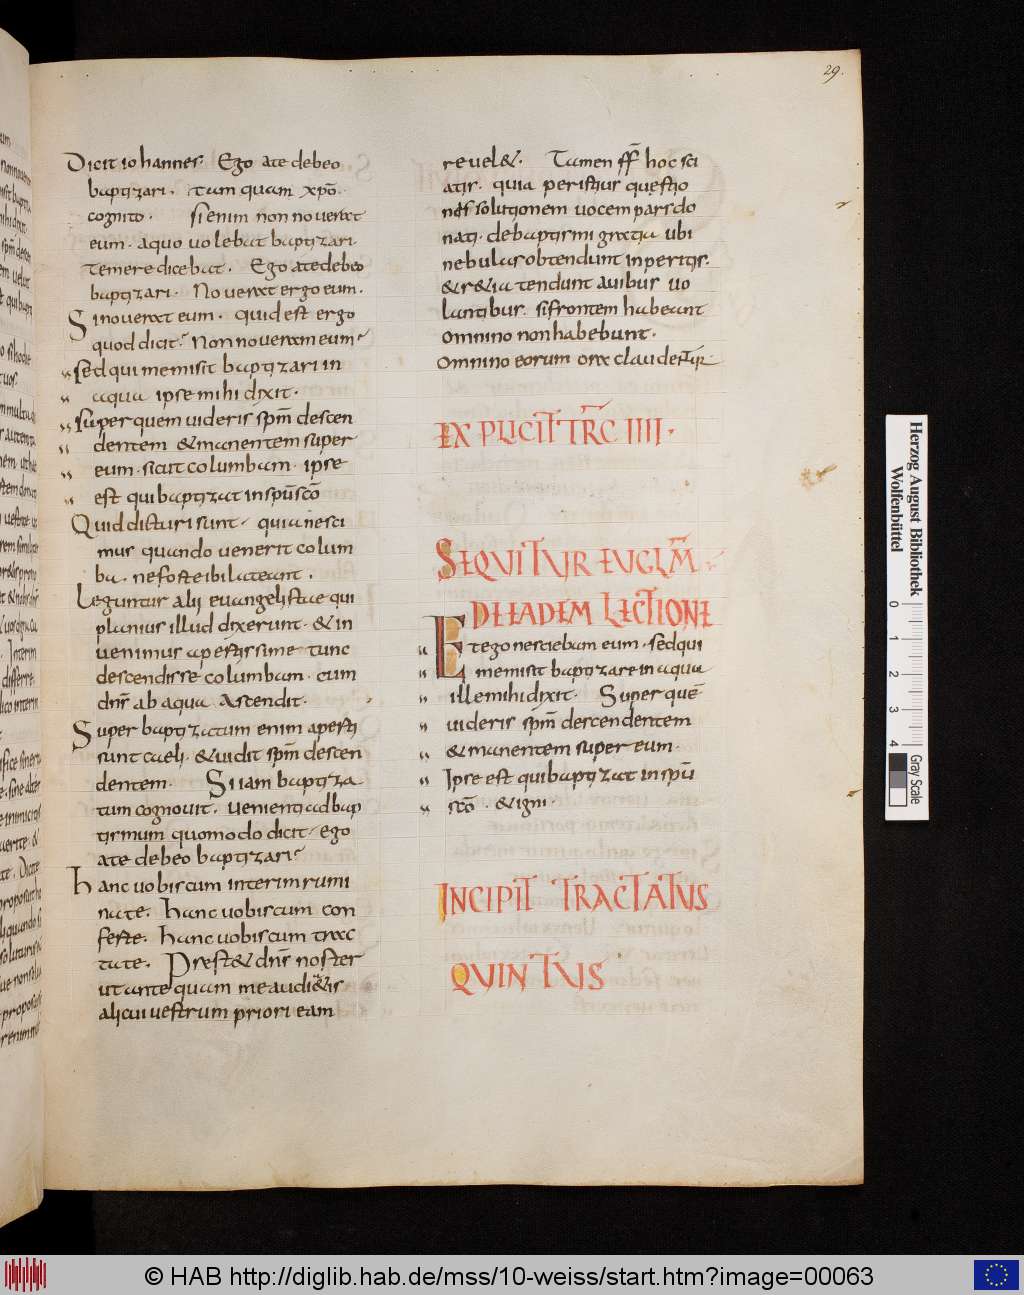 29.
Dicit iohannes. Ego ate debeo
baptizari. tam quam xp̄o
cognito. si enim non noverat
eum. aquo volebat baptizari.
temere dicebat. Ego ate debeo
baptizari. Noverat ergo eum.
Si noverat eum. quid est ergo
quod dicit. Non noveram eum
sed qui me misit baptizari in
aqua ipse mihi dixit.
super quem videris sp̄m descen
dentem & manentem super
eum. sicut columbam. ipse
est qui baptizat in sp̄u sc̄o
Quid dicturi sunt. quia nesci
mus quando venerit colum
ba. ne forte ibi lateant.
Leguntur alii evangelistae qui
planius illud dixerunt. & in
venimus apertissime tunc
descendisse columbam. cum
dn̄s ab aqua Ascendit.
Super baptizatum enim aperti
sunt caeli. & vidit sp̄m descen
dentem. Si iam baptiza
tum cognovit. venienti ad bap
tismum quomodo dicit. ego
ate debeo baptizari
Hanc vobiscum interim rumi
nate. hanc vobiscum con
ferte. hanc vobiscum trac
tate. Prest& dn̄s noster
ut antequam me audi&is
alicui vestrum priori eam
revel&. Tamen ff̄ hoc sci
atis. quia peristius questio
nis solutionem vocem pars do
nati. de baptismi gratia ubi
nebulas obtendunt inperitis.
& r&ia tendunt avibus vo
lantibus. si frontem habeant
omnino non habebunt.
Omnino eorum ora claudentur
EXPLICIT TRC̄ IIII.
SEQUITUR EUGLM̄
DE EADEM LECTIONE
Et ego nesciebam eum. sed qui
me misit baptizare in aqua
ille mihi dixit. Super quē
videris sp̄m descendentem
& manentem super eum.
Ipse est qui baptizat in sp̄u
sc̄o. & igni.
INCIPIT TRACTATUS
QUINTUS
Herzog August Bibliothek
Wolfenbüttel
0 1 2 3 4
Gray Scale
© HAB http://diglib.hab.de/mss/10-weiss/start.htm?image=00063